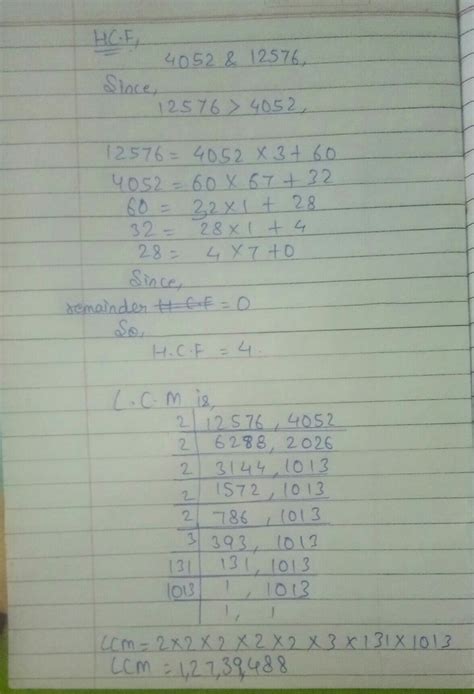 H.C.F,
4052 & 12576,
Since,
12576 > 4052,
12576 = 4052 × 3 + 60
4052 = 60 × 67 + 32
60 = 32 × 1 + 28
32 = 28 × 1 + 4
28 = 4 × 7 + 0
Since,
remainder H.C.F = 0
So,
H.C.F = 4.
L.C.M is,
2 | 12576, 4052
2 | 6288, 2026
2 | 3144, 1013
2 | 1572, 1013
2 | 786, 1013
3 | 393, 1013
131 | 131, 1013
1013 | 1, 1013
1, 1
LCM = 2×2×2×2×2×3×131×1013
LCM = 1,27,39,488